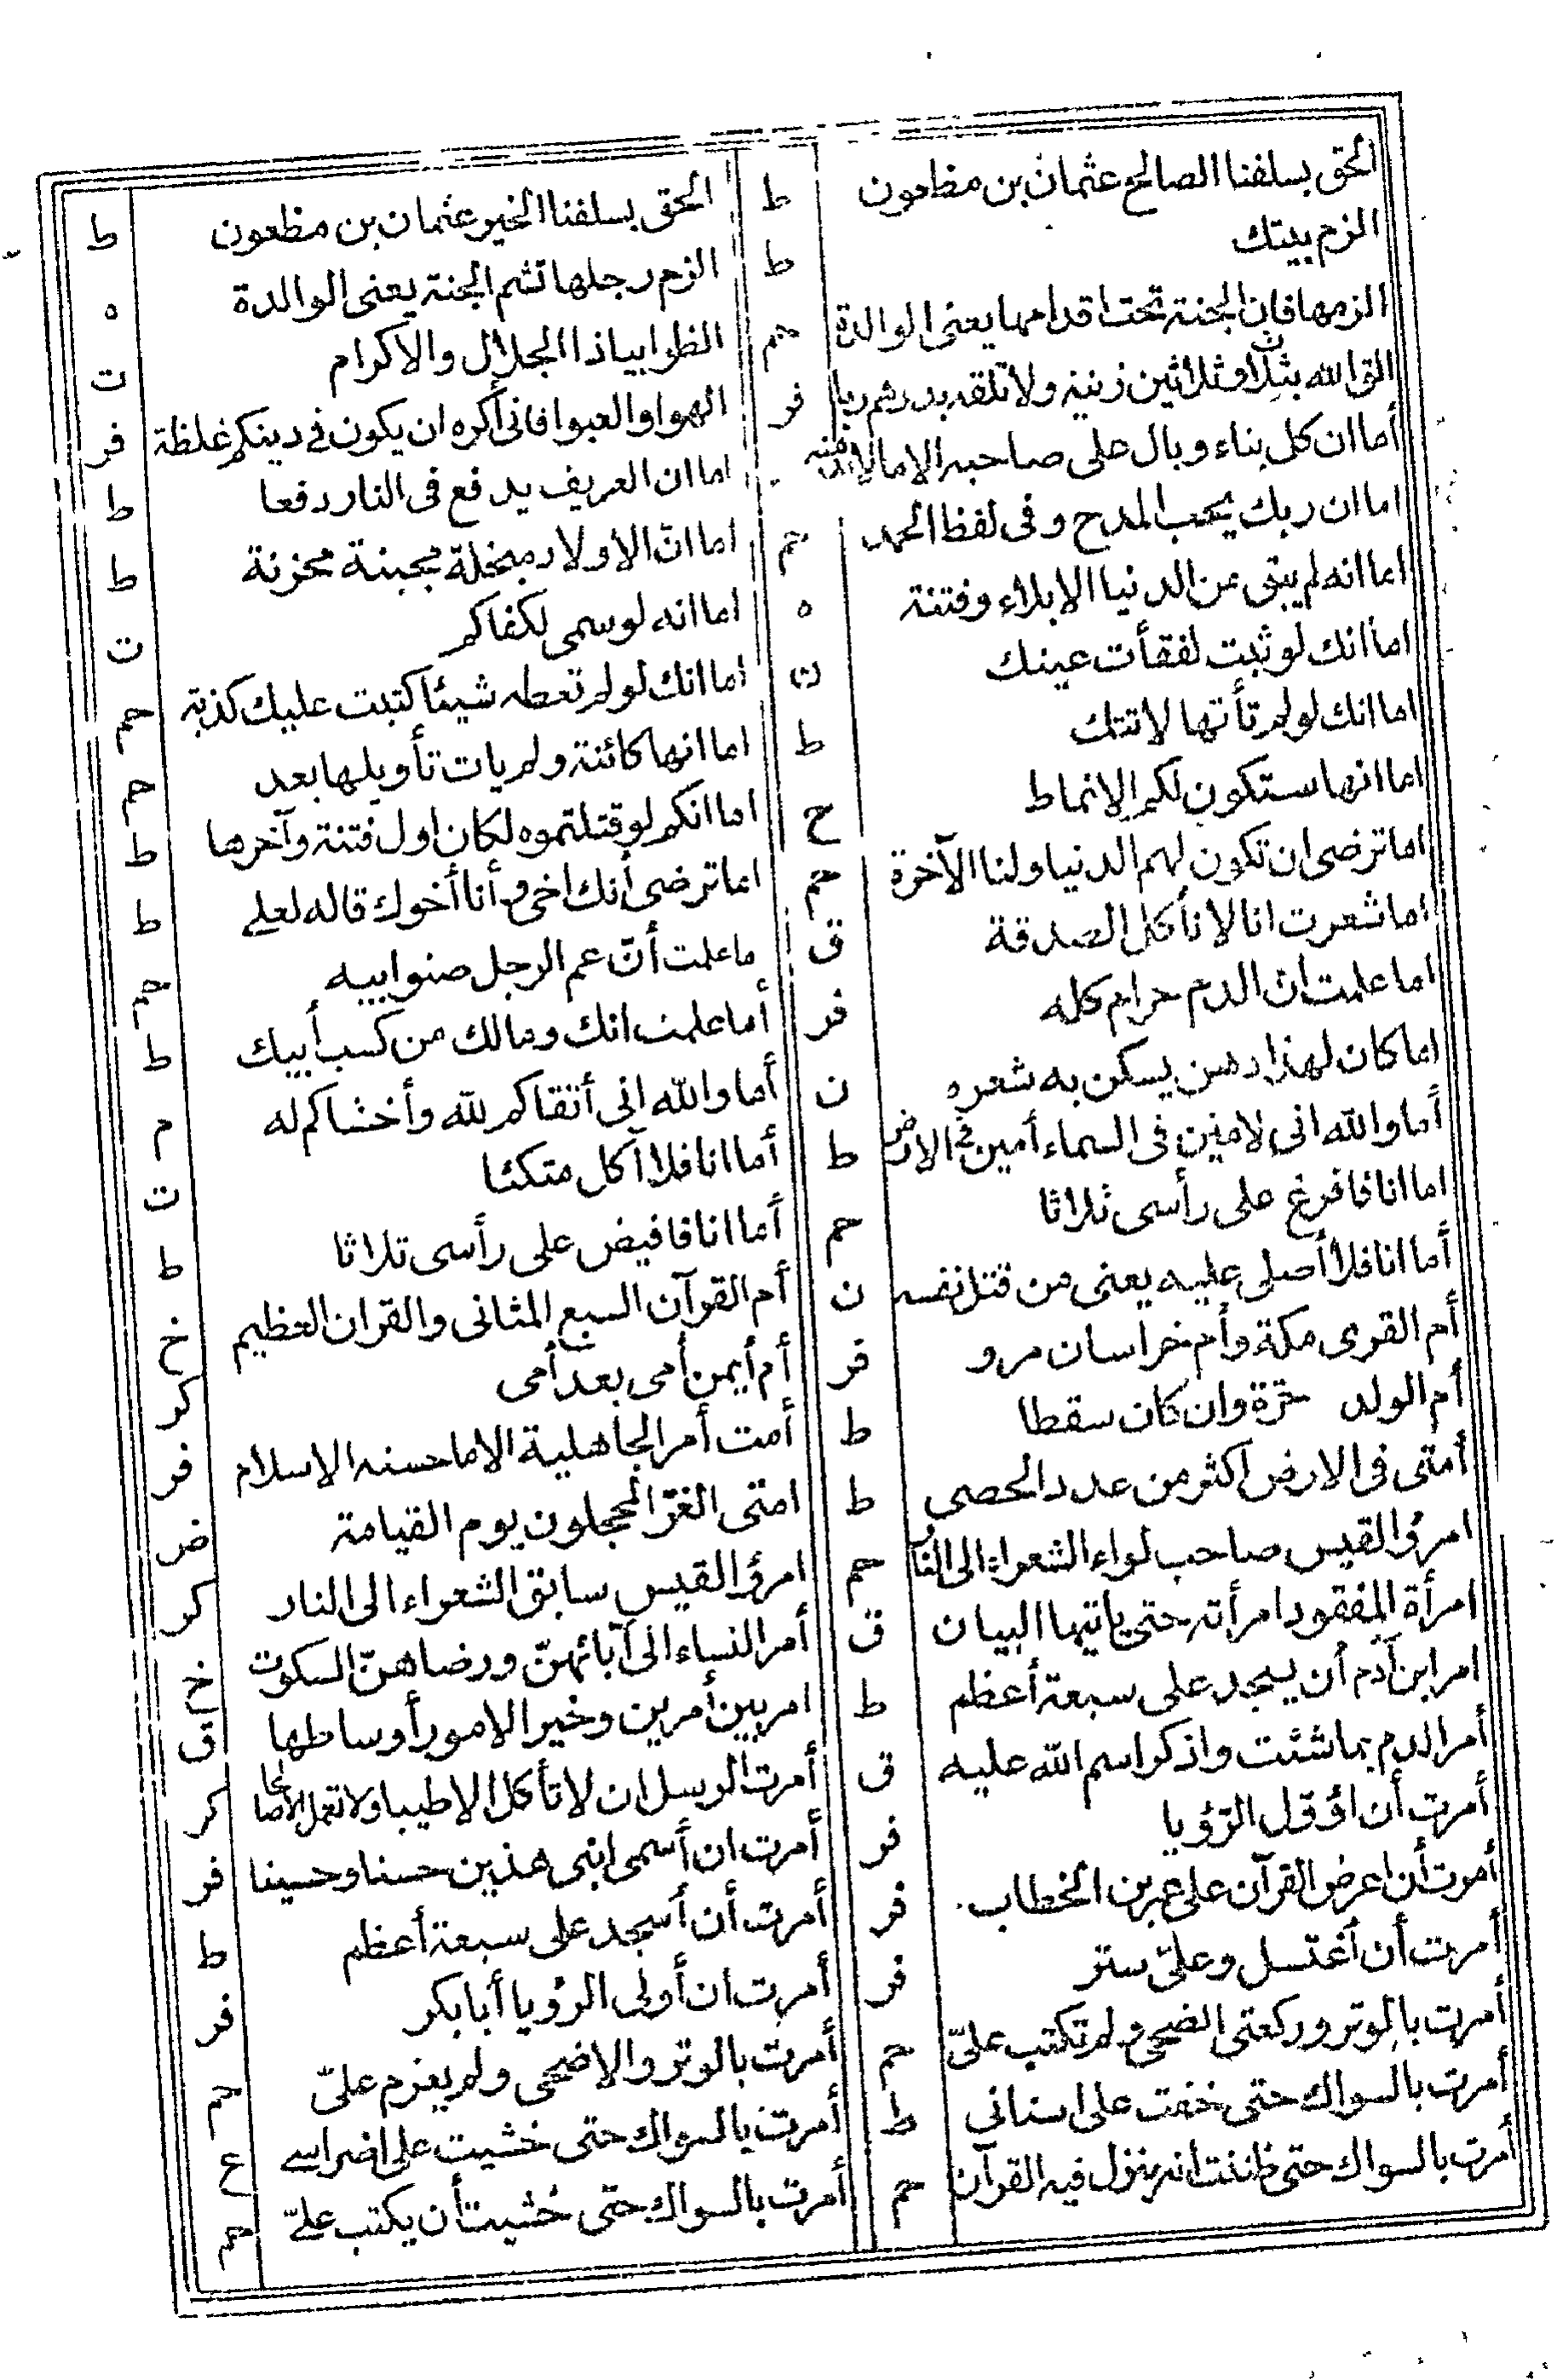 الحق بسلفنا الصالح عثمان بن مظعون ط
الزم بيتك ط
الزمها فان الجنة تحت اقدامها يعنى الوالدة حم
الق الله بثلاث وثلاثين زنية ولا تلقه بدرهم ربا فر
أما ان كل بناء وبال على صاحبه الا مالا بد منه
اما ان ربك يحب المدح وفى لفظ الحمد حم
اما انه لم يبق من الدنيا الا بلاء وفتنة ه
اما انك لو ثبت لفقأت عينك ن
اما انك لو لم تأتها لاتتك ط
اما انها ستكون لكم الانماط خ
اما ترضى ان تكون لهم الدنيا ولنا الآخرة حم
اما شعرت انا لا نأكل الصدقة ق
اما علمت ان الدم حرام كله فر
اما كان لهذا دهن يسكن به شعره ن
أما والله انى لامين فى السماء أمين فى الارض ط
اما انا فافرغ على رأسى ثلاثا حم
أما انا فلا أصلى عليه يعنى من قتل نفسه ن
أم القرى مكة وأم خراسان مرو فر
أم الولد حرّة وان كان سقطا ط
أمتى فى الارض اكثر من عدد الحصى ط
امرؤ القيس صاحب لواء الشعراء الى النار حم
امرأة المفقود امرأته حتى ياتيها البيان ق
امر ابن آدم أن يسجد على سبعة أعظم ط
أمر الدم بما شئت واذكر اسم الله عليه ق
أمرت أن اؤول الرّؤيا فر
أمرت أن اعرض القرآن على عمر بن الخطاب فر
أمرت أن أغتسل وعلىّ ستر فر
أمرت بالوتر وركعتى الضحى ولم تكتب علىّ حم
أمرت بالسواك حتى خفت على اسنانى ط
أمرت بالسواك حتى ظننت انه ينزل فيه القرآن حم
الحقى بسلفنا الخير عثمان بن مظعون ط
الزم رجلها فثم الجنة يعنى الوالدة ه
الظوا بياذا الجلال والاكرام ت
الهوا والعبوا فانى أكره ان يكون فى دينكم غلظة فر
اما ان العريف يدفع فى النار دفعا ط
اما انّ الاولاد مبخلة مجبنة محزنة ط
اما انه لو سمى لكفاكم ت
اما انك لو لم تعطه شيئا كتبت عليك كذبة حم
اما انها كائنة ولم يات تأويلها بعد حم
اما انكم لو قتلتموه لكان اول فتنة وآخرها ط
اما ترضى أنك اخى وأنا أخوك قاله لعلى ط
ما علمت أنّ عم الرجل صنو ابيه حم
أما علمت انك ومالك من كسب أبيك ط
أما والله انى أتقاكم لله وأخشاكم له م
أما انا فلا آكل متكئا ت
أما انا فافيض على رأسى ثلاثا ط
أم القرآن السبع المثانى والقران العظيم خ
أم أيمن أمى بعد أمى كر
أمت أمر الجاهلية الا ما حسنه الاسلام فر
امتى الغرّ المحجلون يوم القيامة ض
امرؤ القيس سابق الشعراء الى النار كر
أمر النساء الى آبائهنّ ورضاهنّ السكوت خ
امر بين أمرين وخير الامور أوساطها ق
أمرت الرسل ان لا تأكل الا طيبا ولا تعمل الا صالحا كر
أمرت ان أسمى ابنى هذين حسنا وحسينا فر
أمرت أن أسجد على سبعة أعظم ط
أمرت ان أولى الرؤيا أبا بكر فر
أمرت بالوتر والاضحى ولم يعزم علىّ حم
أمرت بالسواك حتى خشيت على اضراسى ع
أمرت بالسواك حتى خشيت أن يكتب علىّ حم